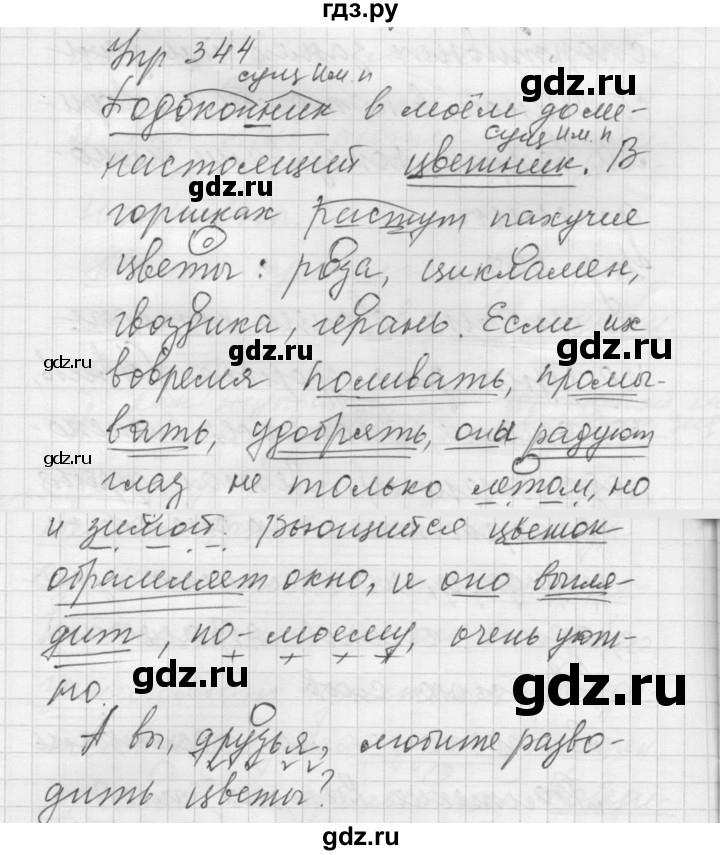 гдз.ру
Упр 344
сущ Им. п
Подоконник в моём доме-
сущ Им. п
настоящий цветник. В
gdz.ru
горшках растут пахучие
цветы: роза, цикламен,
гвоздика, герань. Если их
gdz.ru gdz.ru gdz.ru
вовремя поливать, промы-
вать, удобрять, они радуют
gdz.ru
глаз не только летом, но
и зимой. Вьющийся цветок
обрамляет окно, и оно выгля-
дит, по-моему, очень уют-
но.
gdz.ru gdz.ru
А вы, друзья, любите разво-
дить цветы?
gdz.ru
gdz.ru